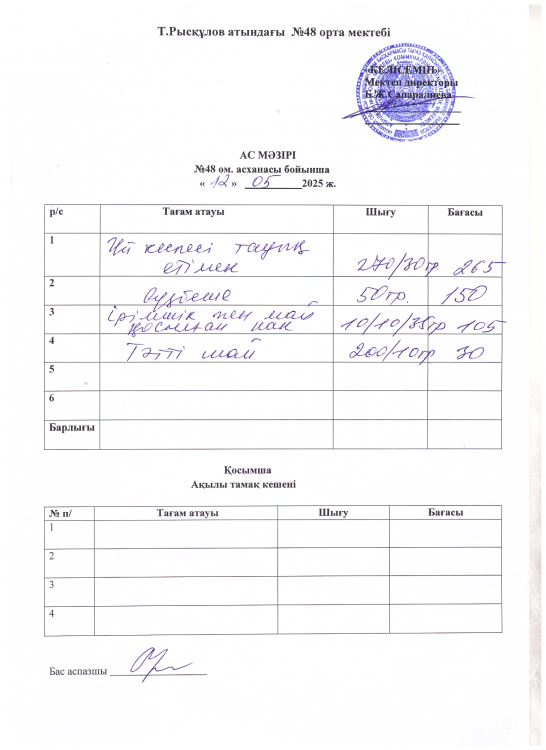 Т.Рысқұлов атындағы №48 орта мектебі
«КЕЛІСЕМІН»
Мектеп директоры
Б.Ж.Сапаралиева
АС МӘЗІРІ
№48 ом. асханасы бойынша
« 12 » 05 2025 ж.
р/с Тағам атауы Шығу Бағасы
1 Үй кеспесі тауық
етімен 270/30гр 265
2 50гр. 150
3 ірімшік пен май
қосылған нан 10/10/35гр 105
4 Тәтті шай 200/10гр 30
5
6
Барлығы
Қосымша
Ақылы тамақ кешені
№ п/ Тағам атауы Шығу Бағасы
1
2
3
4
Бас аспазшы